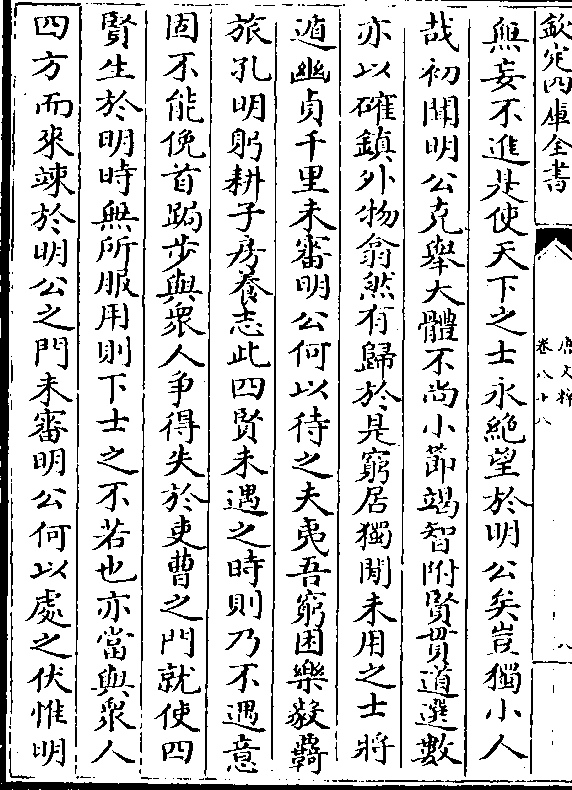 欽定四庫全書
唐文粹
卷八十八
八
無妄不進是使天下之士永絶望於明公矣豈獨小人
哉初聞明公克舉大體不尚小節竭智附賢貫道選數
亦以確鎮外物翕然有歸於是窮居獨閒未用之士將
遁幽貞千里未審明公何以待之夫夷吾窮困樂毅羇
旅孔明躬耕子房養志此四賢未遇之時則乃不遇意
固不能俛首跼步與衆人爭得失於吏曹之門就使四
賢生於明時無所服用則下士之不若也亦當與衆人
四方而來竦於明公之門未審明公何以處之伏惟明